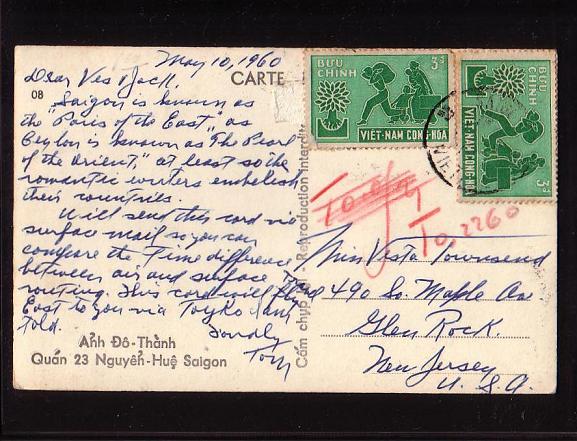 May 10, 1960
Dear Ves & Jack,
Saigon is known as
the "Paris of the East", as
Ceylon is known as "The Pearl
of the Orient", at least so the
romantic writers embelish
their countries.
Will send this card via
surface mail so you can
compare the time difference
between air and surface
routing. This card will
East to you via Toyko I am
told.
Fondly
Tom
08
CARTE
Ảnh Đô-Thành
Quán 23 Nguyễn-Huệ Saigon
Cấm chụp lại - Reproduction interdite
BƯU CHÍNH
3đ
VIỆT-NAM CỘNG-HÒA
BƯU CHÍNH
3đ
VIỆT-NAM CỘNG-HÒA
VIET
T0,2260
Miss Vesta Townsend
490 So. Maple Ave
Glen Rock.
New Jersey
U. S. A.